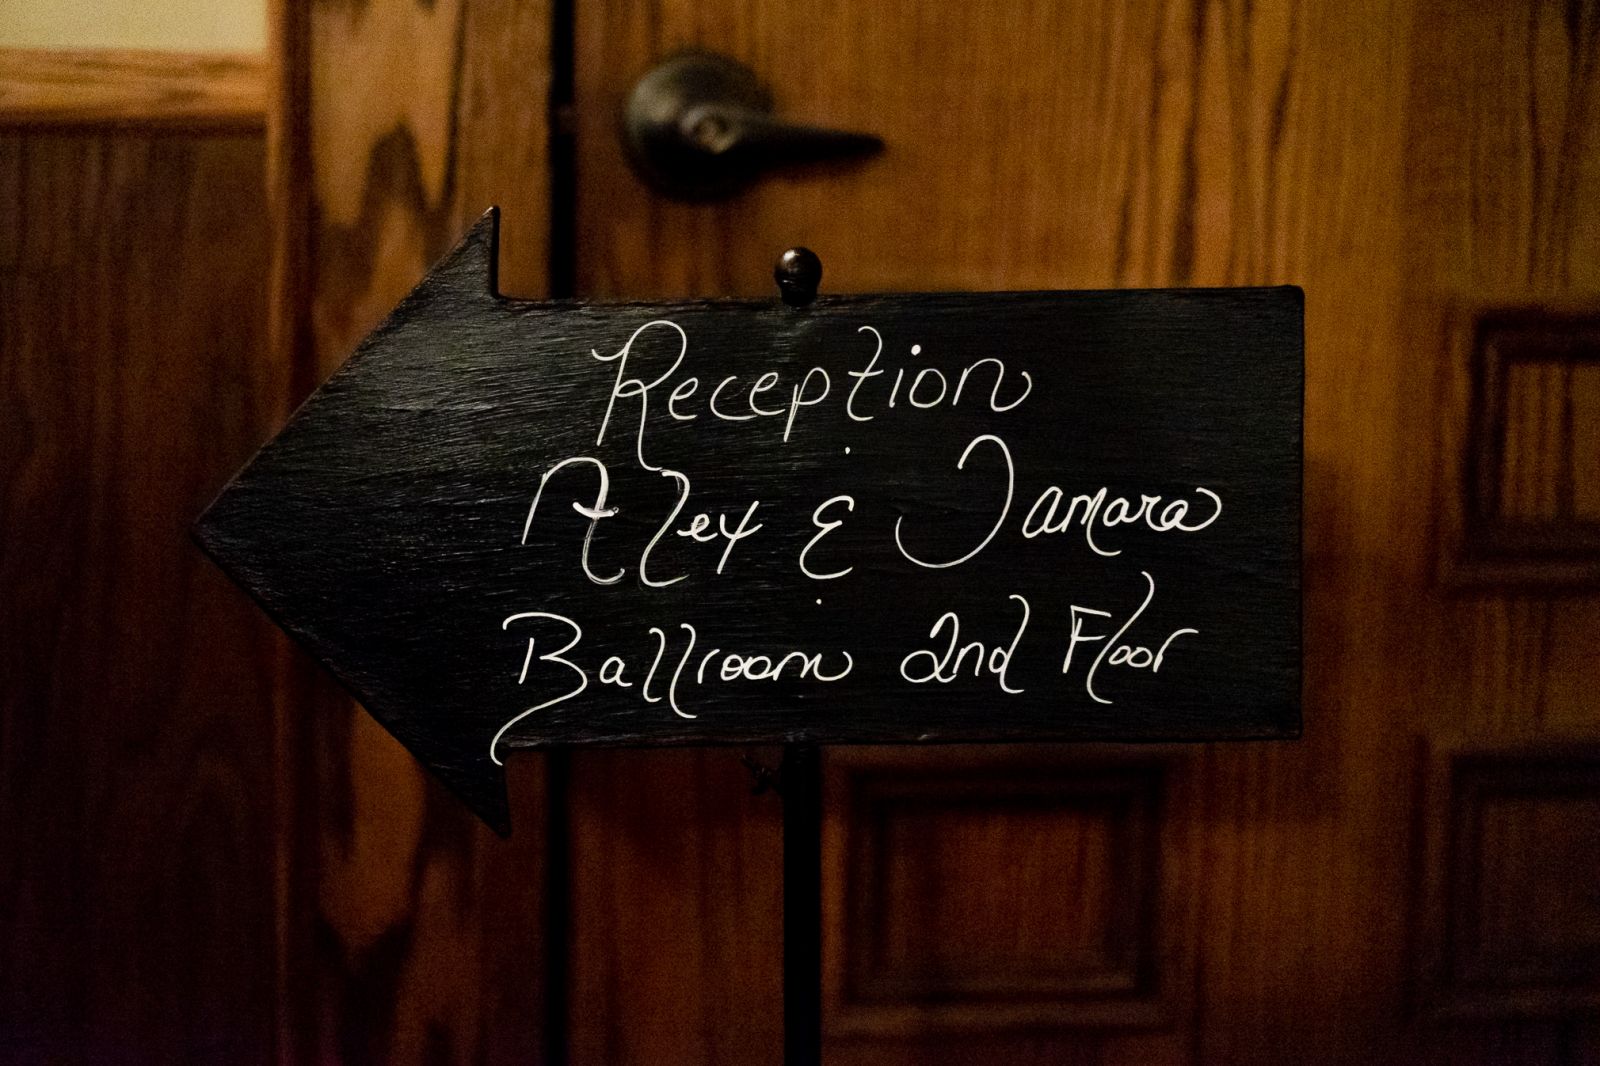 Reception
Alex & Tamara
Ballroom 2nd Floor